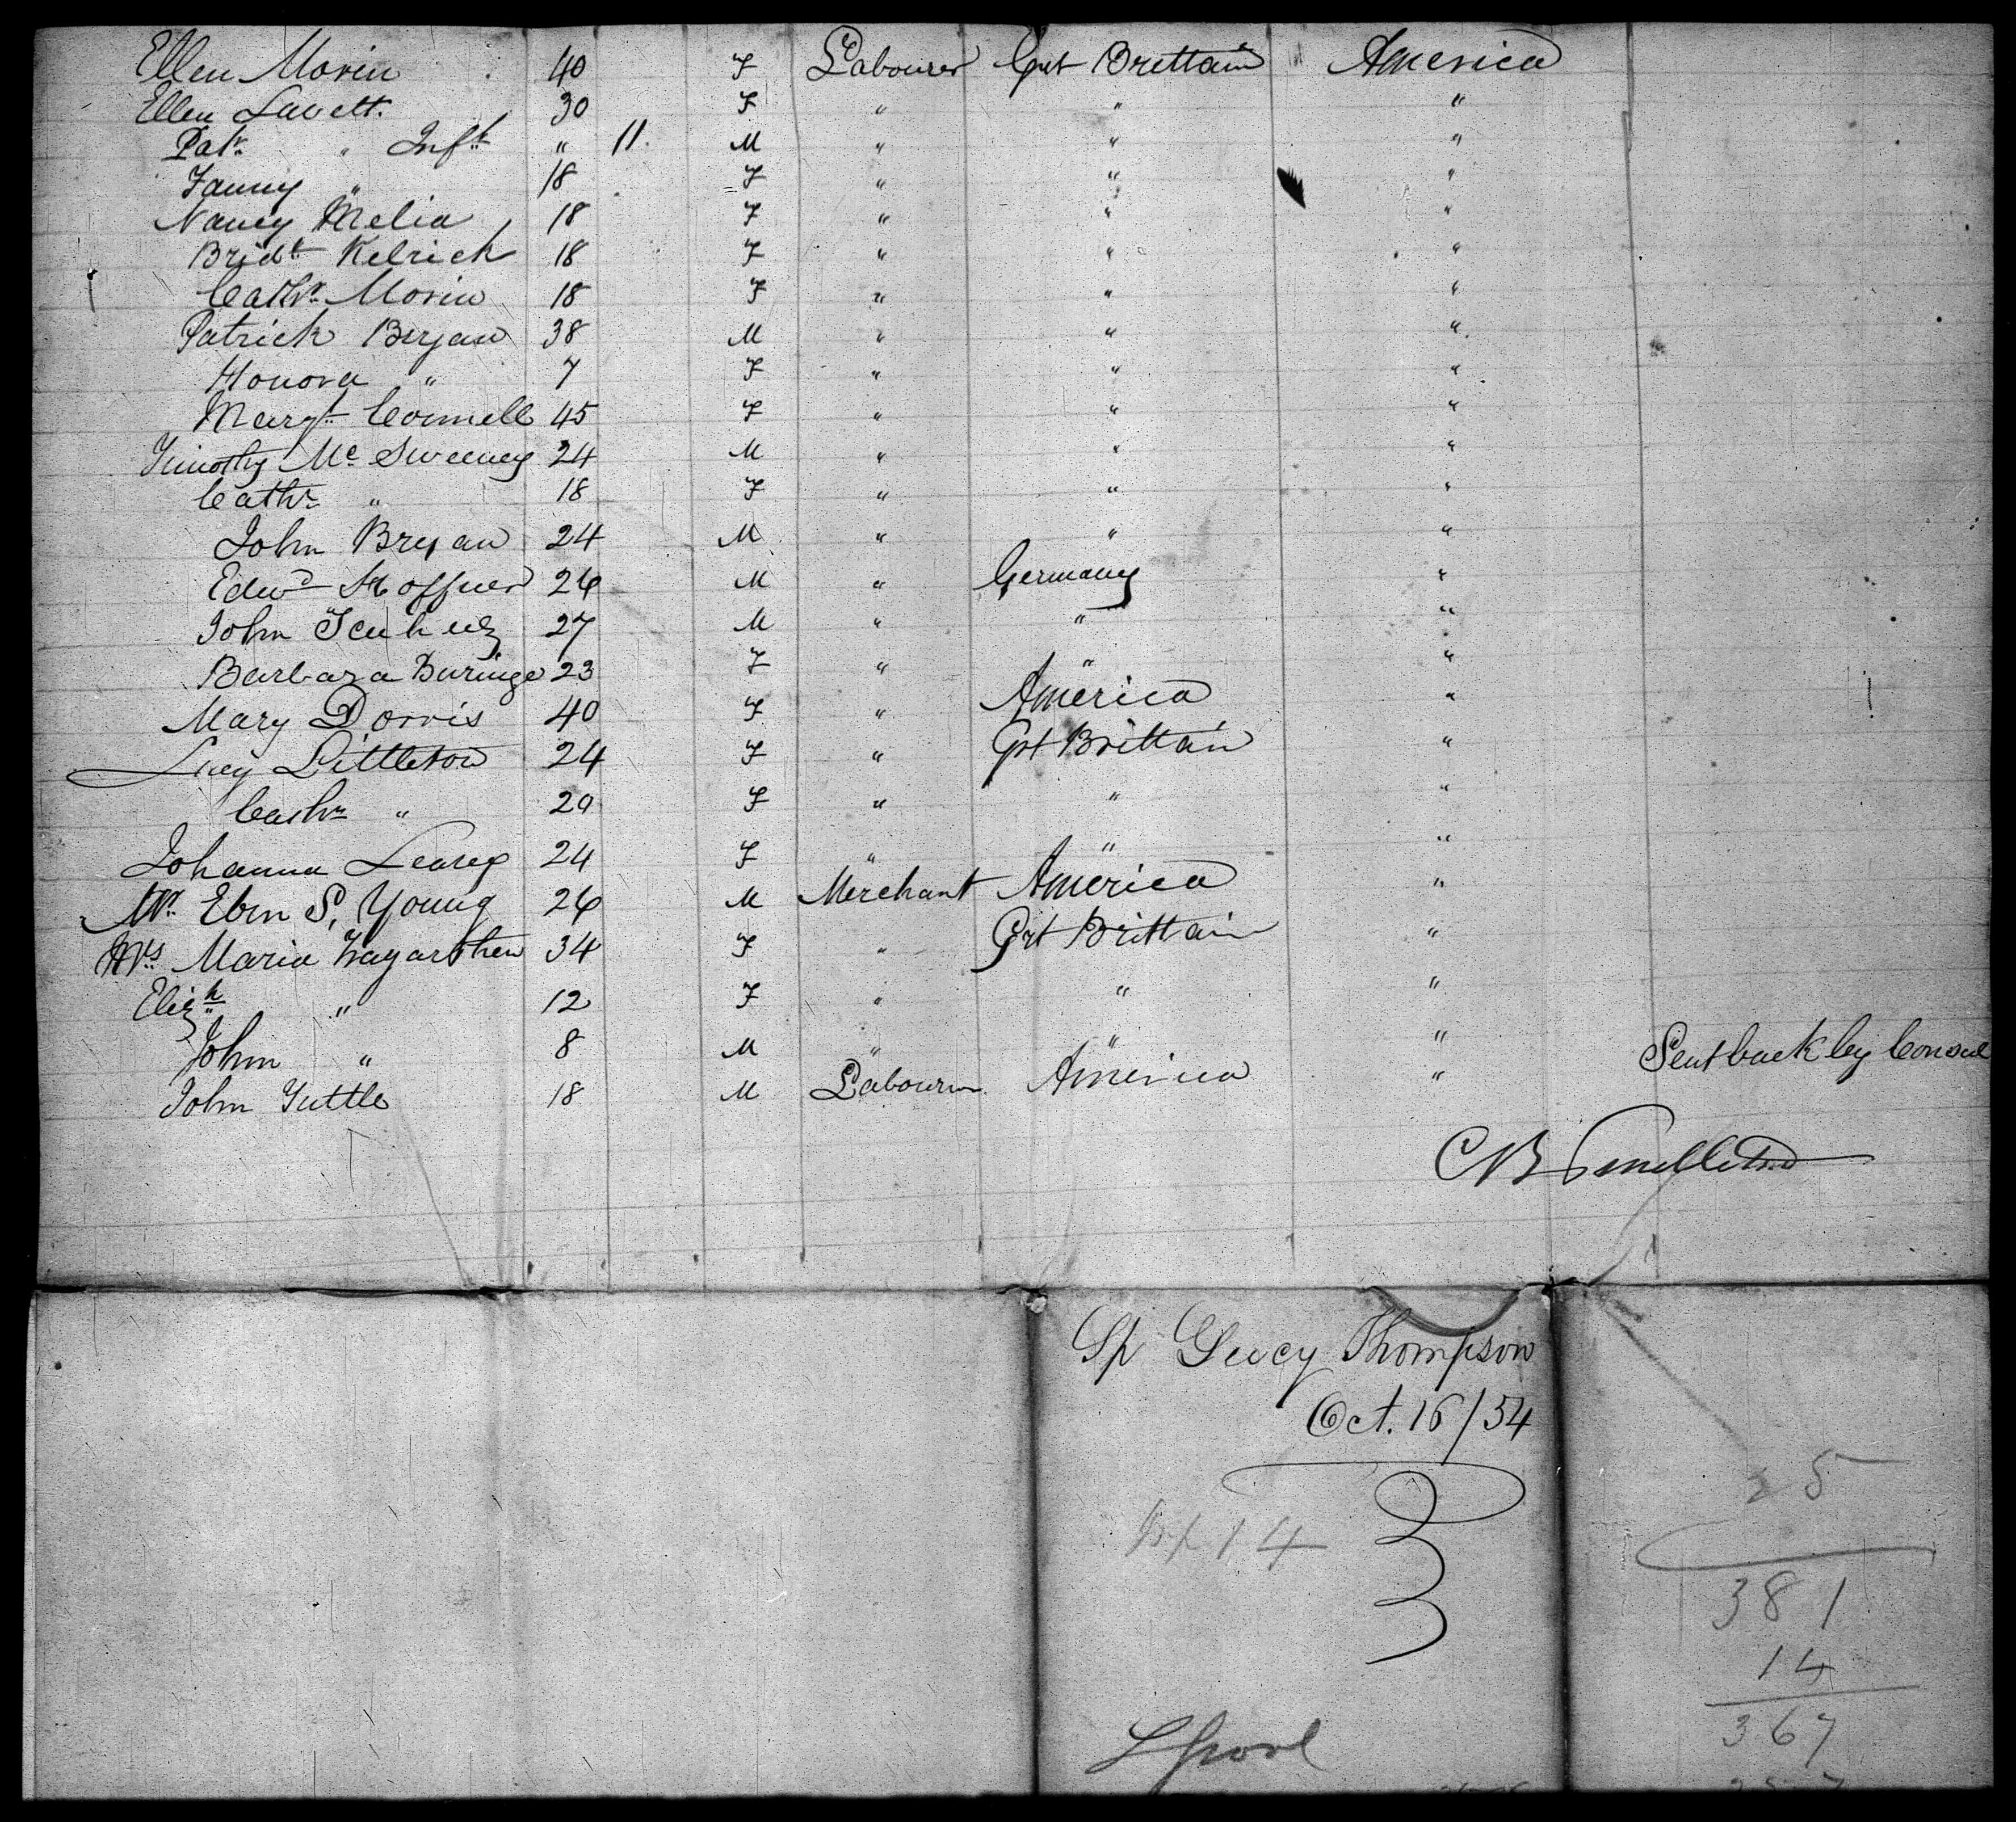 Ellen Morin 40 F Labourer Grt Brettain America
Ellen Lavett. 30 F " " "
Patk " Inft " 11. M " " "
Fanny " 18 F " " "
Nancy Melia 18 F " " "
Bridt Kelrick 18 F " " "
Cathr Morin 18 F " " "
Patrick Bryan 38 M " " "
Honora " 7 F " " "
Margt Connell 45 F " " "
Timothy Mc Sweeney 24 M " " "
Cathr " 18 F " " "
John Bryan 24 M " " "
Edwd Hoffner 26 M " Germany "
John 27 M " " "
Barbara Buringe 23 F " " "
Mary Dorris 40 F " America "
Lucy Littleton 24 F " Grt Brittain "
Cathr " 20 F " " "
Johanna Learey 24 F " " "
Mr. Ebin S. Young 26 M Merchant America "
Mrs Maria 34 F " Grt Brittain "
Elizh " 12 F " " "
John " 8 M " " "
John Tuttle 18 M Labourer America " Sent back by Consul
CB
Sp Lucy Thompson
Oct. 16/54
14
25
381
14
367
Lpool